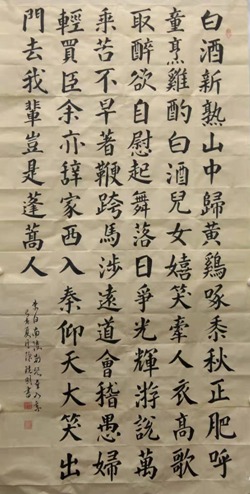 白酒新熟山中歸黃鷄啄黍秋正肥呼
童烹雞酌白酒兒女嬉笑牽人衣高歌
取醉欲自慰起舞落日爭光輝游說萬
乘苦不早著鞭跨馬涉遠道會稽愚婦
輕買臣余亦辭家西入秦仰天大笑出
門去我輩豈是蓬蒿人
李白南陵別兒童入京
書